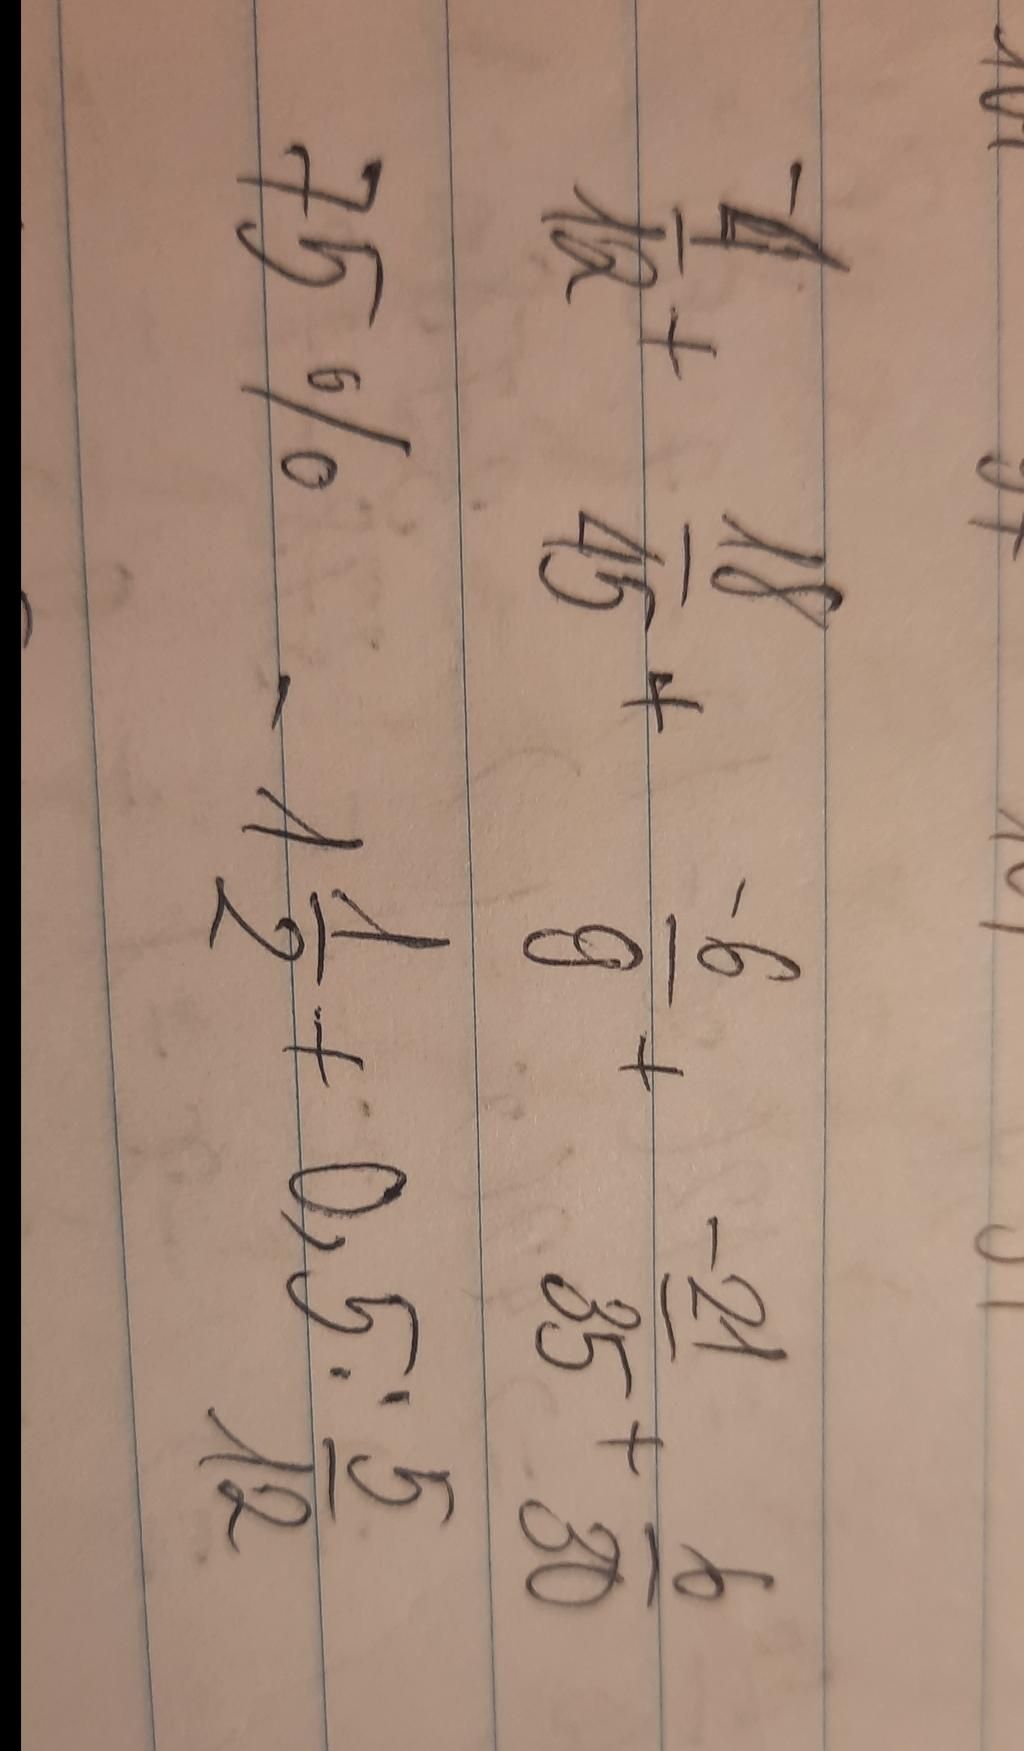 -4/12 + 18/45 + -6/9 + -21/35 + 6/30
75% - 1 1/2 + 0,5 : 5/12